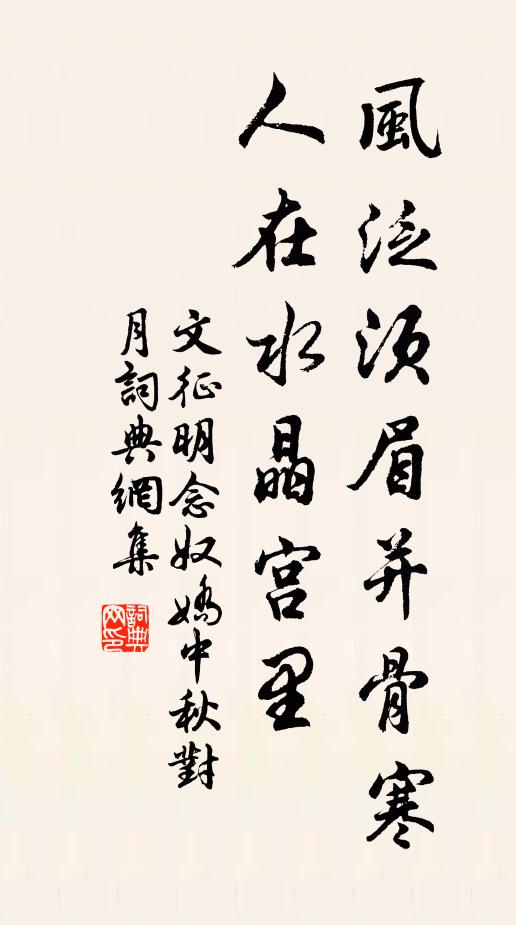 風泛須眉并骨寒
人在水晶宮里
文征明念奴嬌中秋對
月詞典網集
詞典
网印